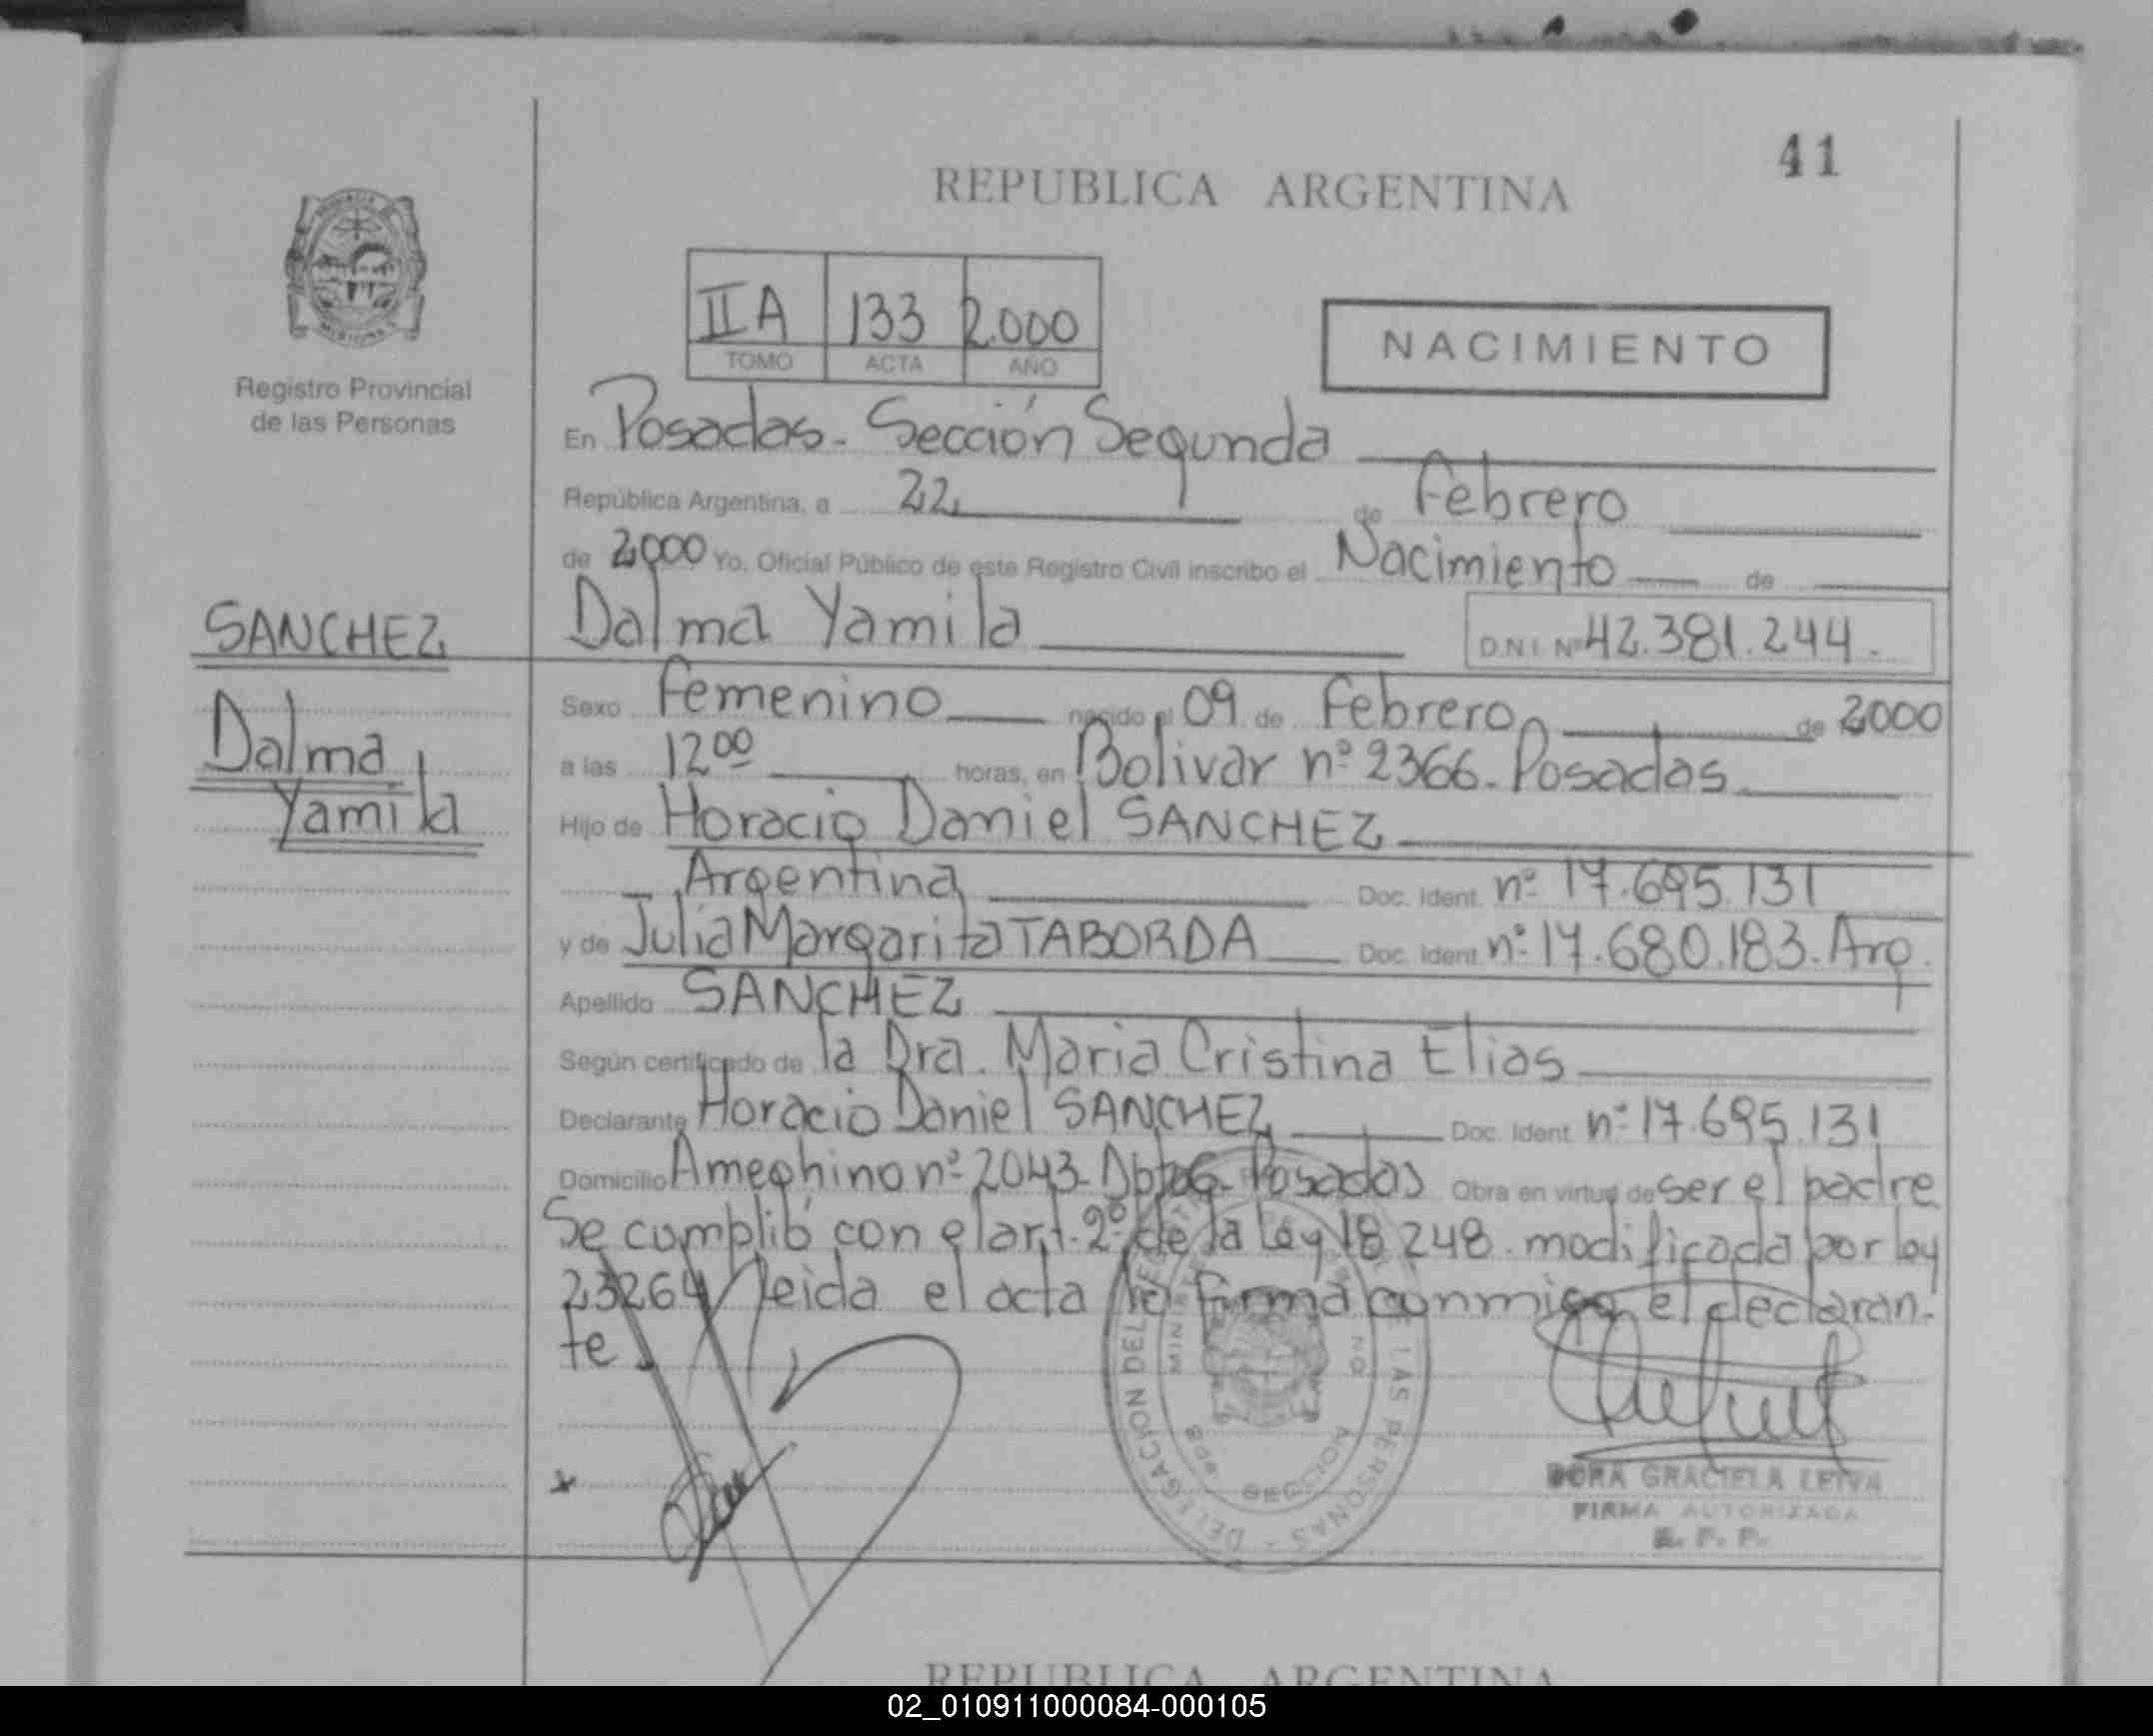 41
REPUBLICA ARGENTINA
IIA 133 2.000
TOMO ACTA AÑO
NACIMIENTO
Registro Provincial
de las Personas
En Posadas - Sección Segunda
República Argentina, a 22 de Febrero
de 2000 Yo, Oficial Público de este Registro Civil inscribo el Nacimiento de
SANCHEZ
Dalma Yamila D.N.I. Nº 42.381.244.
Dalma
Yamila
Sexo Femenino nacido el 09 de Febrero de 2000
a las 12 00 horas, en Bolivar nº 2366. Posadas
Hijo de Horacio Daniel SANCHEZ
Argentina Doc. Ident. nº 17.695.131
y de Julia Margarita TABORDA Doc. Ident. nº 17.680.183. Arg.
Apellido SANCHEZ
Según certificado de la Dra. Maria Cristina Elias
Declarante Horacio Daniel SANCHEZ Doc. Ident. nº 17.695.131
Domicilio Ameghino nº 2043. Posadas Obra en virtud de ser el padre
Se cumplió con el art. 2º de la Ley 18.248. modificada por ley
23264 leida el acta la firma conmigo el declaran-
te
DELEGACION DEL LAS PERSONAS
DORA GRACIELA LEIVA
FIRMA AUTORIZADA
REPUBLICA ARGENTINA
02_010911000084-000105